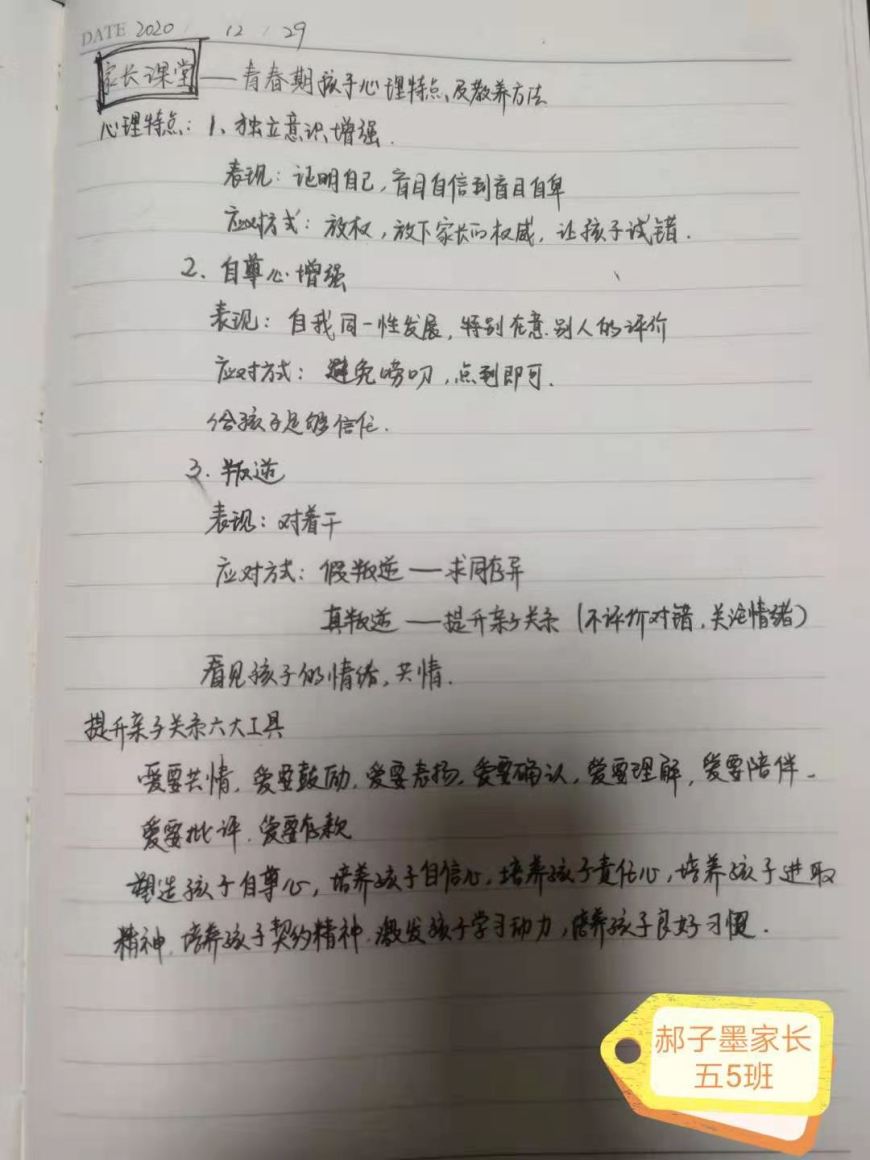 DATE 2020 / 12 / 29
家长课堂——青春期孩子心理特点及教养方法
心理特点：1、独立意识增强.
表现：证明自己，盲目自信到盲目自卑
应对方式：放权，放下家长的权威，让孩子试错.
2. 自尊心增强
表现：自我同一性发展，特别在意别人的评价
应对方式：避免唠叨，点到即可.
给孩子足够信任.
3. 叛逆
表现：对着干
应对方式：假叛逆——求同存异
真叛逆——提升亲子关系（不评价对错，关注情绪）
看见孩子的情绪，共情.
提升亲子关系六大工具
爱要共情，爱要鼓励，爱要表扬，爱要确认，爱要理解，爱要陪伴.
爱要批评，爱要存款
塑造孩子自尊心，培养孩子自信心，培养孩子责任心，培养孩子进取
精神，培养孩子契约精神，激发孩子学习动力，培养孩子良好习惯.
郝子墨家长
五5班